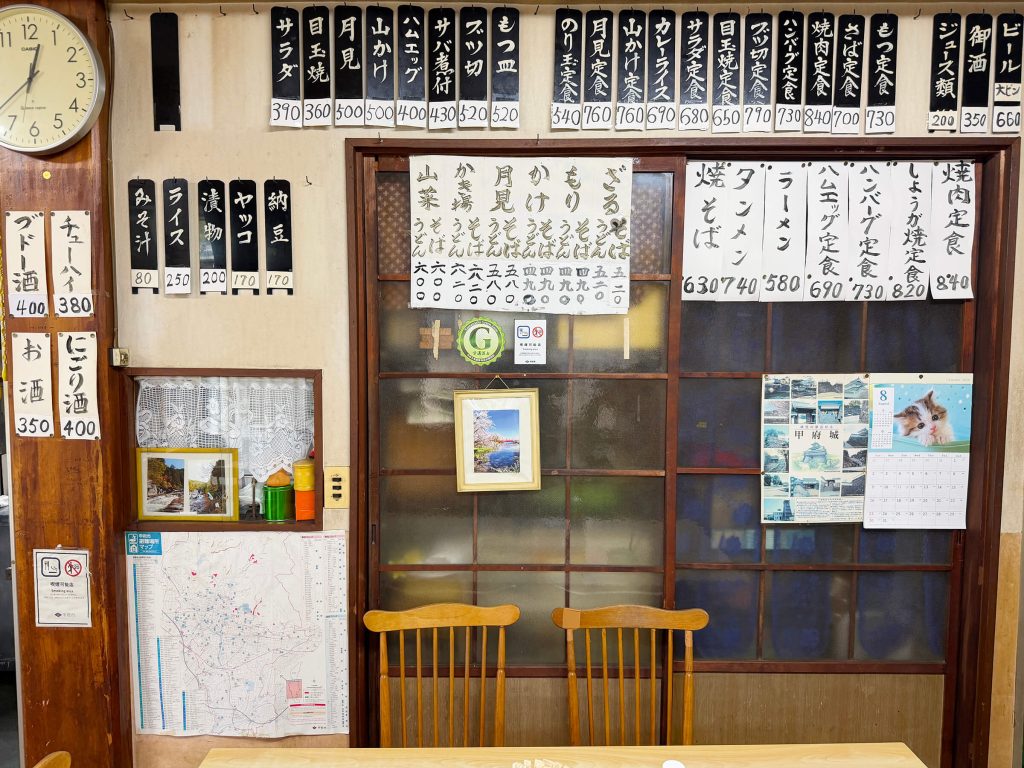 サラダ 390
目玉焼 360
月見 500
山かけ 500
ハムエッグ 400
サバ煮付 430
ブツ切 520
もつ皿 520
のり玉定食 540
月見定食 760
山かけ定食 760
カレーライス 690
サラダ定食 680
目玉焼定食 650
ブツ切定食 770
ハンバーグ定食 730
焼肉定食 840
さば定食 700
もつ定食 730
ジュース類 200
御酒 350
ビール 大ビン 660
CASIO
みそ汁 80
ライス 250
漬物 200
ヤッコ 170
納豆 170
ブドー酒 400
チューハイ 380
お酒 350
にごり酒 400
山菜 うどん そば 六〇〇
かき揚 うどん そば 六二〇
月見 うどん そば 五八〇
かけ うどん そば 四九〇
もり うどん そば 四九〇
ざる うどん そば 五二〇
焼そば 630
タンメン 740
ラーメン 580
ハムエッグ定食 690
ハンバーグ定食 730
しょうが焼定食 820
焼肉定食 840
G
喫煙可能店
Smoking area
甲府城
8
甲府市
避難場所
マップ
喫煙可能店
Smoking area